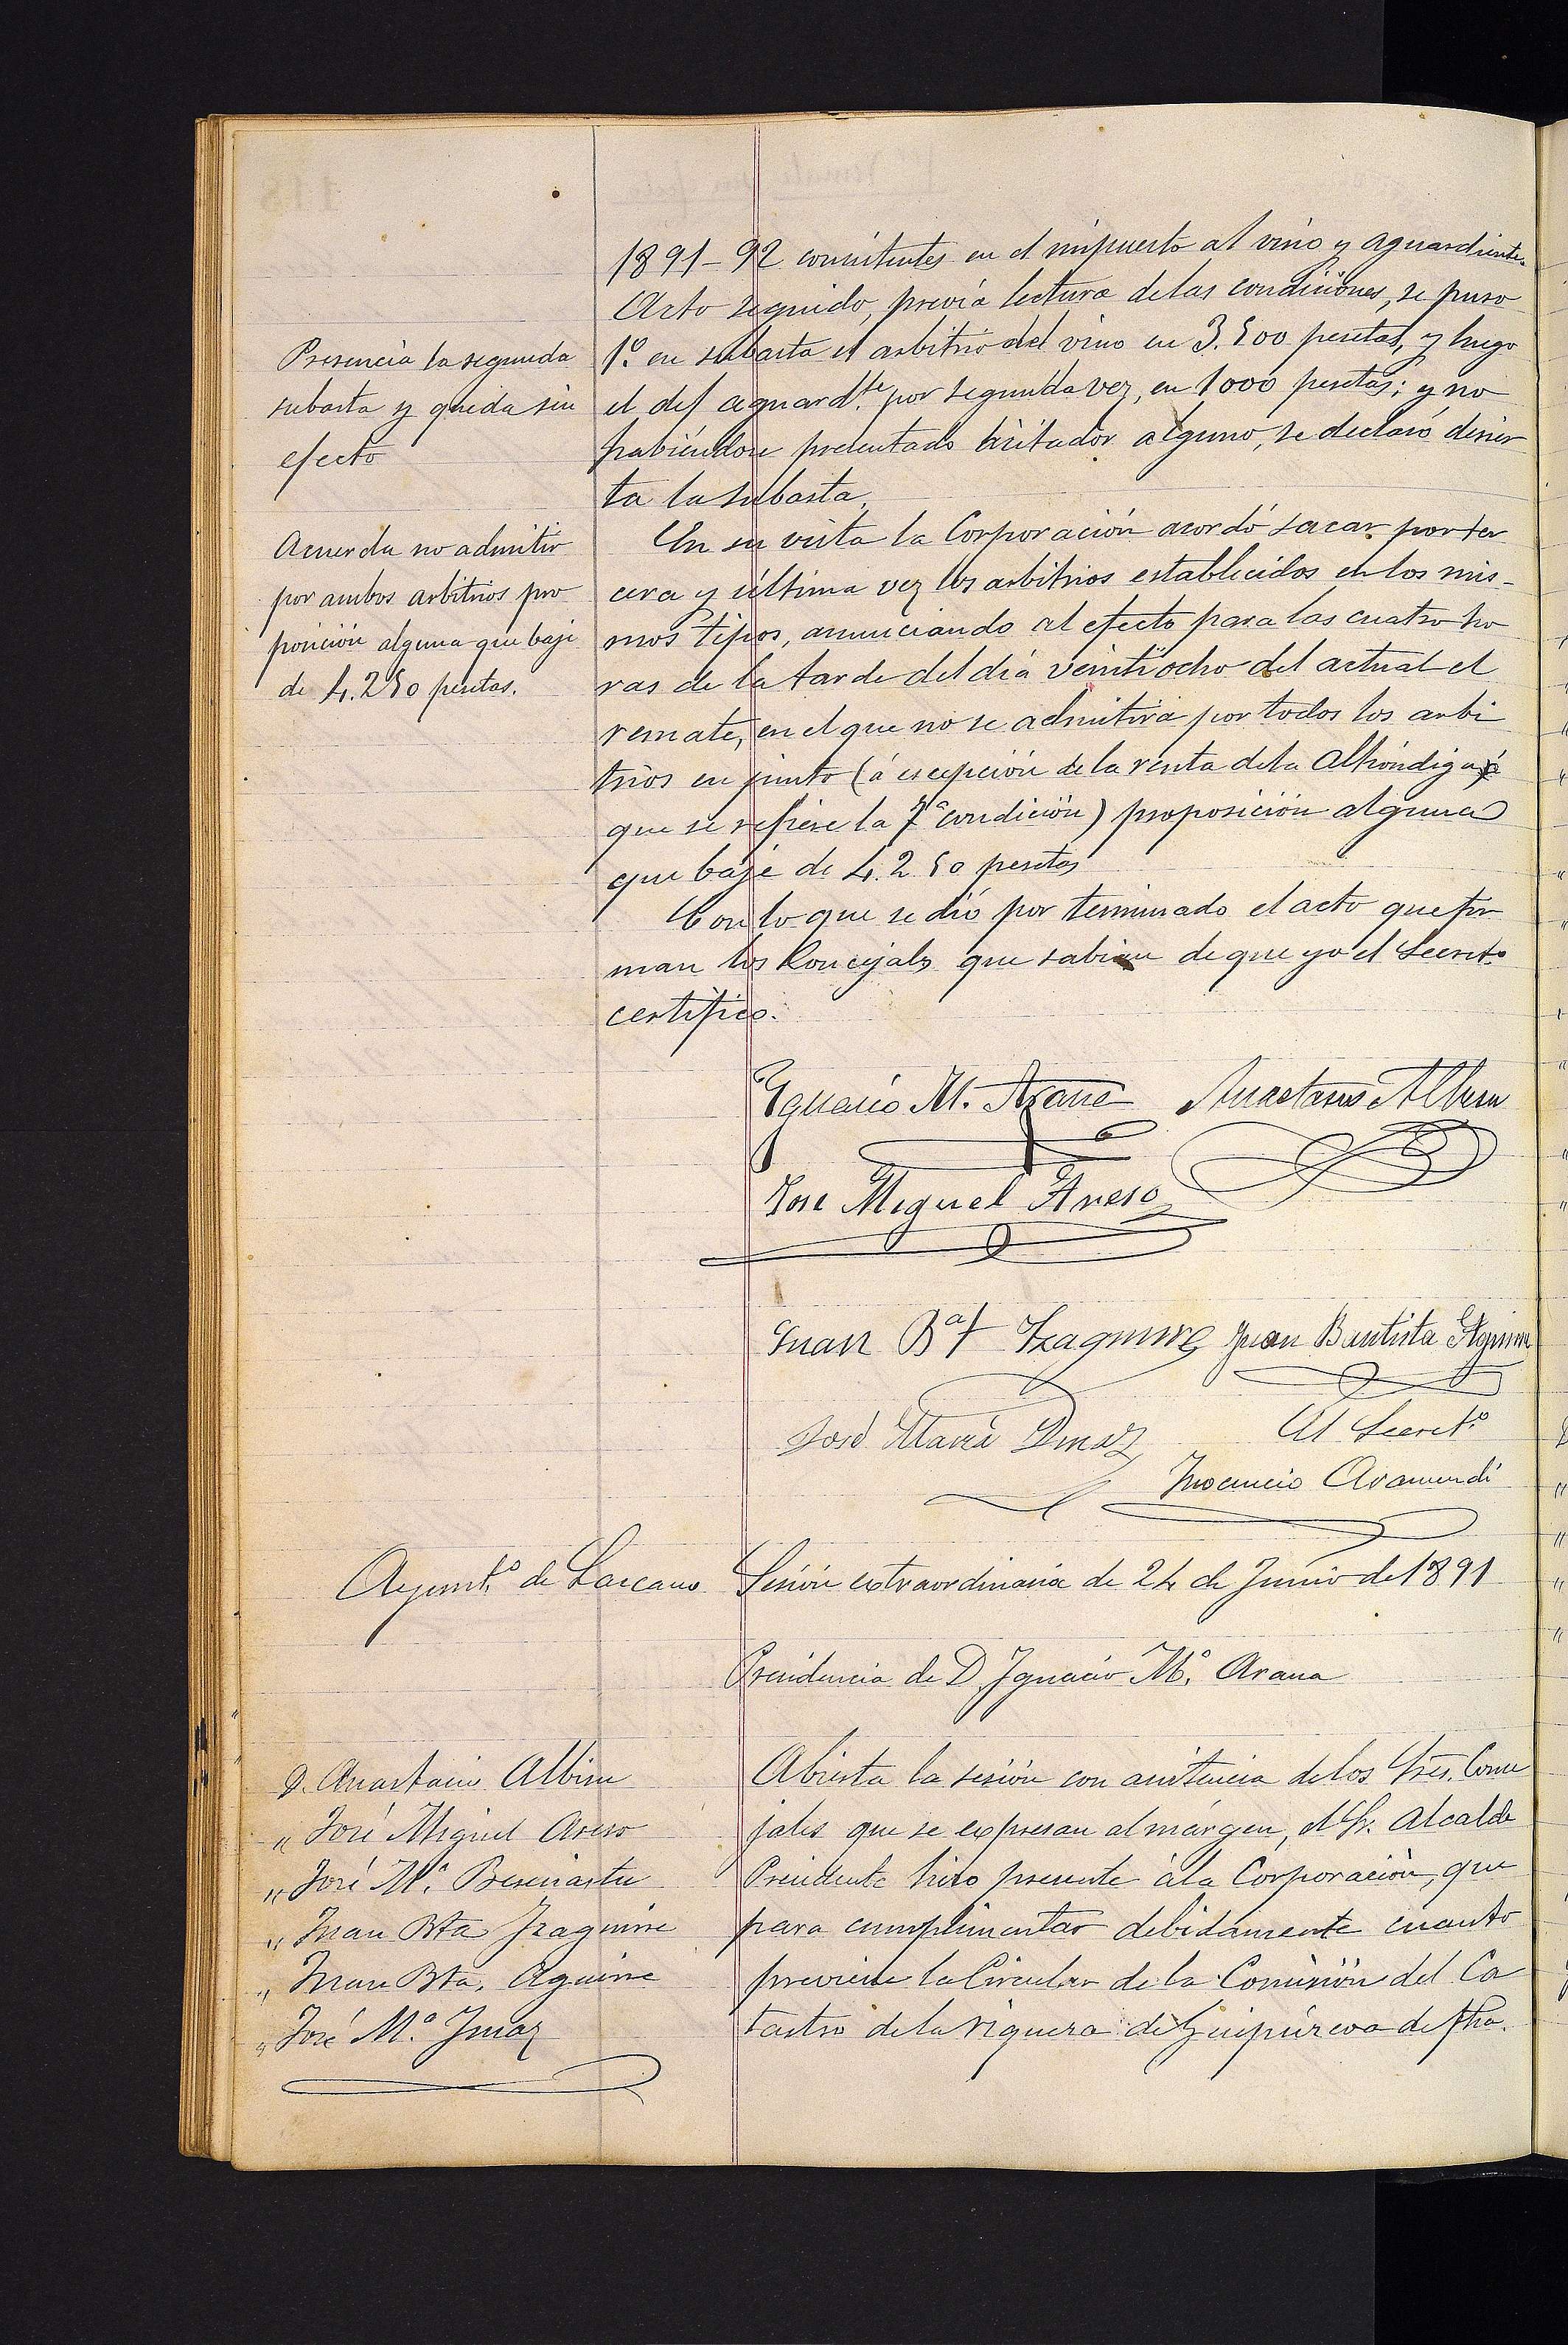 1891-92 consistentes en el impuesto al vino y aguardiente.
Acto seguido, previa lectura de las condiciones, se puso
Presencia la segunda
subasta y queda sin
efecto
1.º en subasta el arbitrio del vino en 3.500 pesetas, y luego
el del aguard.te por segunda vez, en 1000 pesetas; y no
habiéndose presentado licitador alguno, se declaró desier
ta la subasta.
Acuerda no admitir
por ambos arbitrios pro
posición alguna que baje
de 4.250 pesetas.
En su vista la Corporación acordó sacar por ter
cera y última vez los arbitrios establecidos en los mis-
mos tipos, anunciando al efecto para las cuatro ho
ras de la tarde del día veintiocho del actual el
remate, en el que no se admitirá por todos los arbi
trios en junto (á escepción de la renta de la Alhóndiga á
que se refiere la 7.ª condición) proposición alguna
que baje de 4.250 pesetas
Con lo que se dió por terminado el acto que fir
man los Concejales que sabian de que yo el Secret.º
certifico.
Ignacio M. Arana Anastasio Albisu
José Miguel Areso
Juan Bat Izaguirre Juan Bautista Aguirre
José María Imaz El Secret.º
Inocencio Aramendi
Ayunt.º de Lazcano Sesión extraordinaria de 24 de Junio de 1891
Presidencia de D. Ignacio M.ª Arana
D. Anastasio Albisu
" José Miguel Areso
" José M.ª Beseiartu
" Juan Bta Izaguirre
" Juan Bta. Aguirre
" José M.ª Imaz
Abierta la sesión con asistencia de los Sres. Conce
jales que se expresan al márgen, el Sr. Alcalde
Presidente hizo presente á la Corporación, que
para cumplimentar debidamente cuanto
previene la Circular de la Comisión del Ca
tastro de la riqueza de Guipúzcoa de fha.